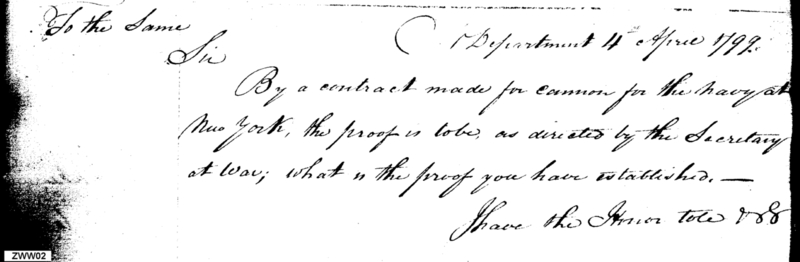 To the Same
Department 4th April 1799.
Sir
By a contract made for cannon for the navy at
New York, the proof is to be, as directed by the Secretary
at War; what is the proof you have established. —
I have the Honor to be &c&c
ZWW02